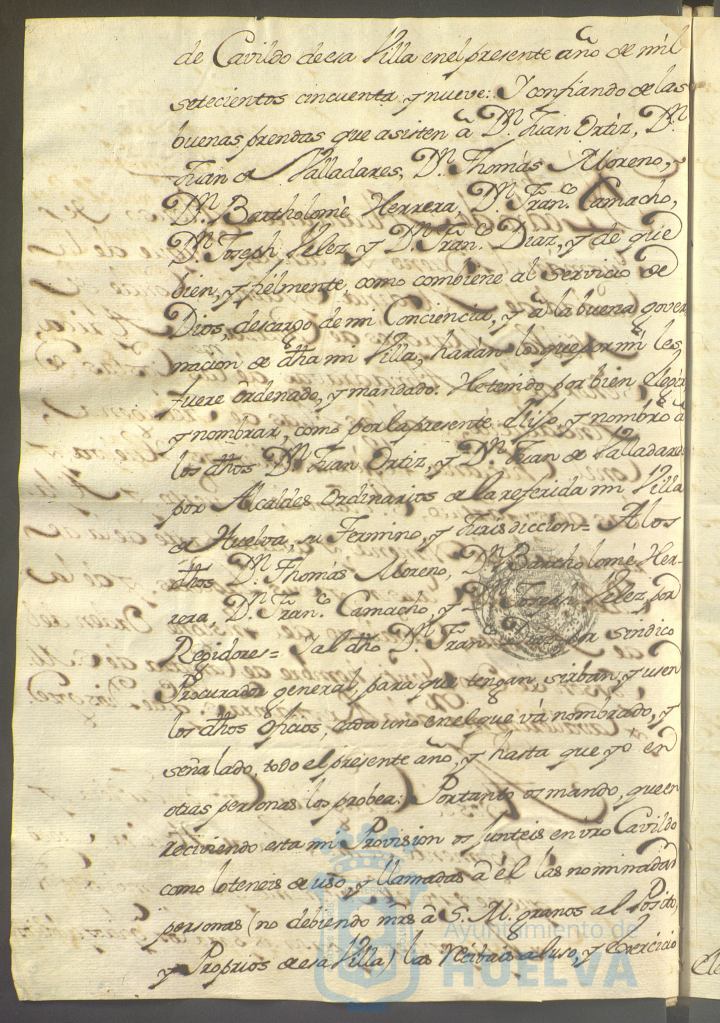 de Cavildo de esa Villa en el presente año de mil
setecientos cincuenta, y nueve: Y confiando de las
buenas prendas que asisten â Dn. Juan Ortiz, Dn.
Juan de Valladares, Dn. Thomás Moreno,
Dn. Bartholomè Herrera, Dn. Fran.co Camacho,
Dn. Joseph Velez, y Dn. Fran.co Diaz, y de que
bien, y fielmente, como combiene al servicio de
Dios, descargo de mi Conciencia, y â la buena gover
nacion de dha mi Villa, harán lo que por mì les
fuere ordenado, y mandado. He tenido por bien
y nombrar, como por la presente elijo, y nombro â
los dhos Dn. Juan Ortiz, y Dn. Juan de Valladares
por Alcaldes Ordinarios de la referida mi Villa
de Huelva, su Termino, y Jurisdiccion= A los
dhos Dn. Thomás Moreno, Dn. Bartholomè Her-
rera, Dn. Fran.co Camacho, y Dn. Joseph Velez, por
Regidores= Y al dho Dn. Fran.co Diaz por sindico
Procurador general, para que tengan, sirban, y usen
los dhos oficios, cada uno en el que và nombrado, y
señalado, todo el presente año, y hasta que yo en
otras personas los probea: Portanto os mando, que en
reciviendo esta mi Provision os junteis en vro Cavildo
como lo teneis de uso, y llamadas â èl las nominadas
personas (no debiendo mrs â S. M. granos al Posito,
y Proprios de esa Villa) las recibais al uso, y Exercicio
Ayuntamiento de
HUELVA